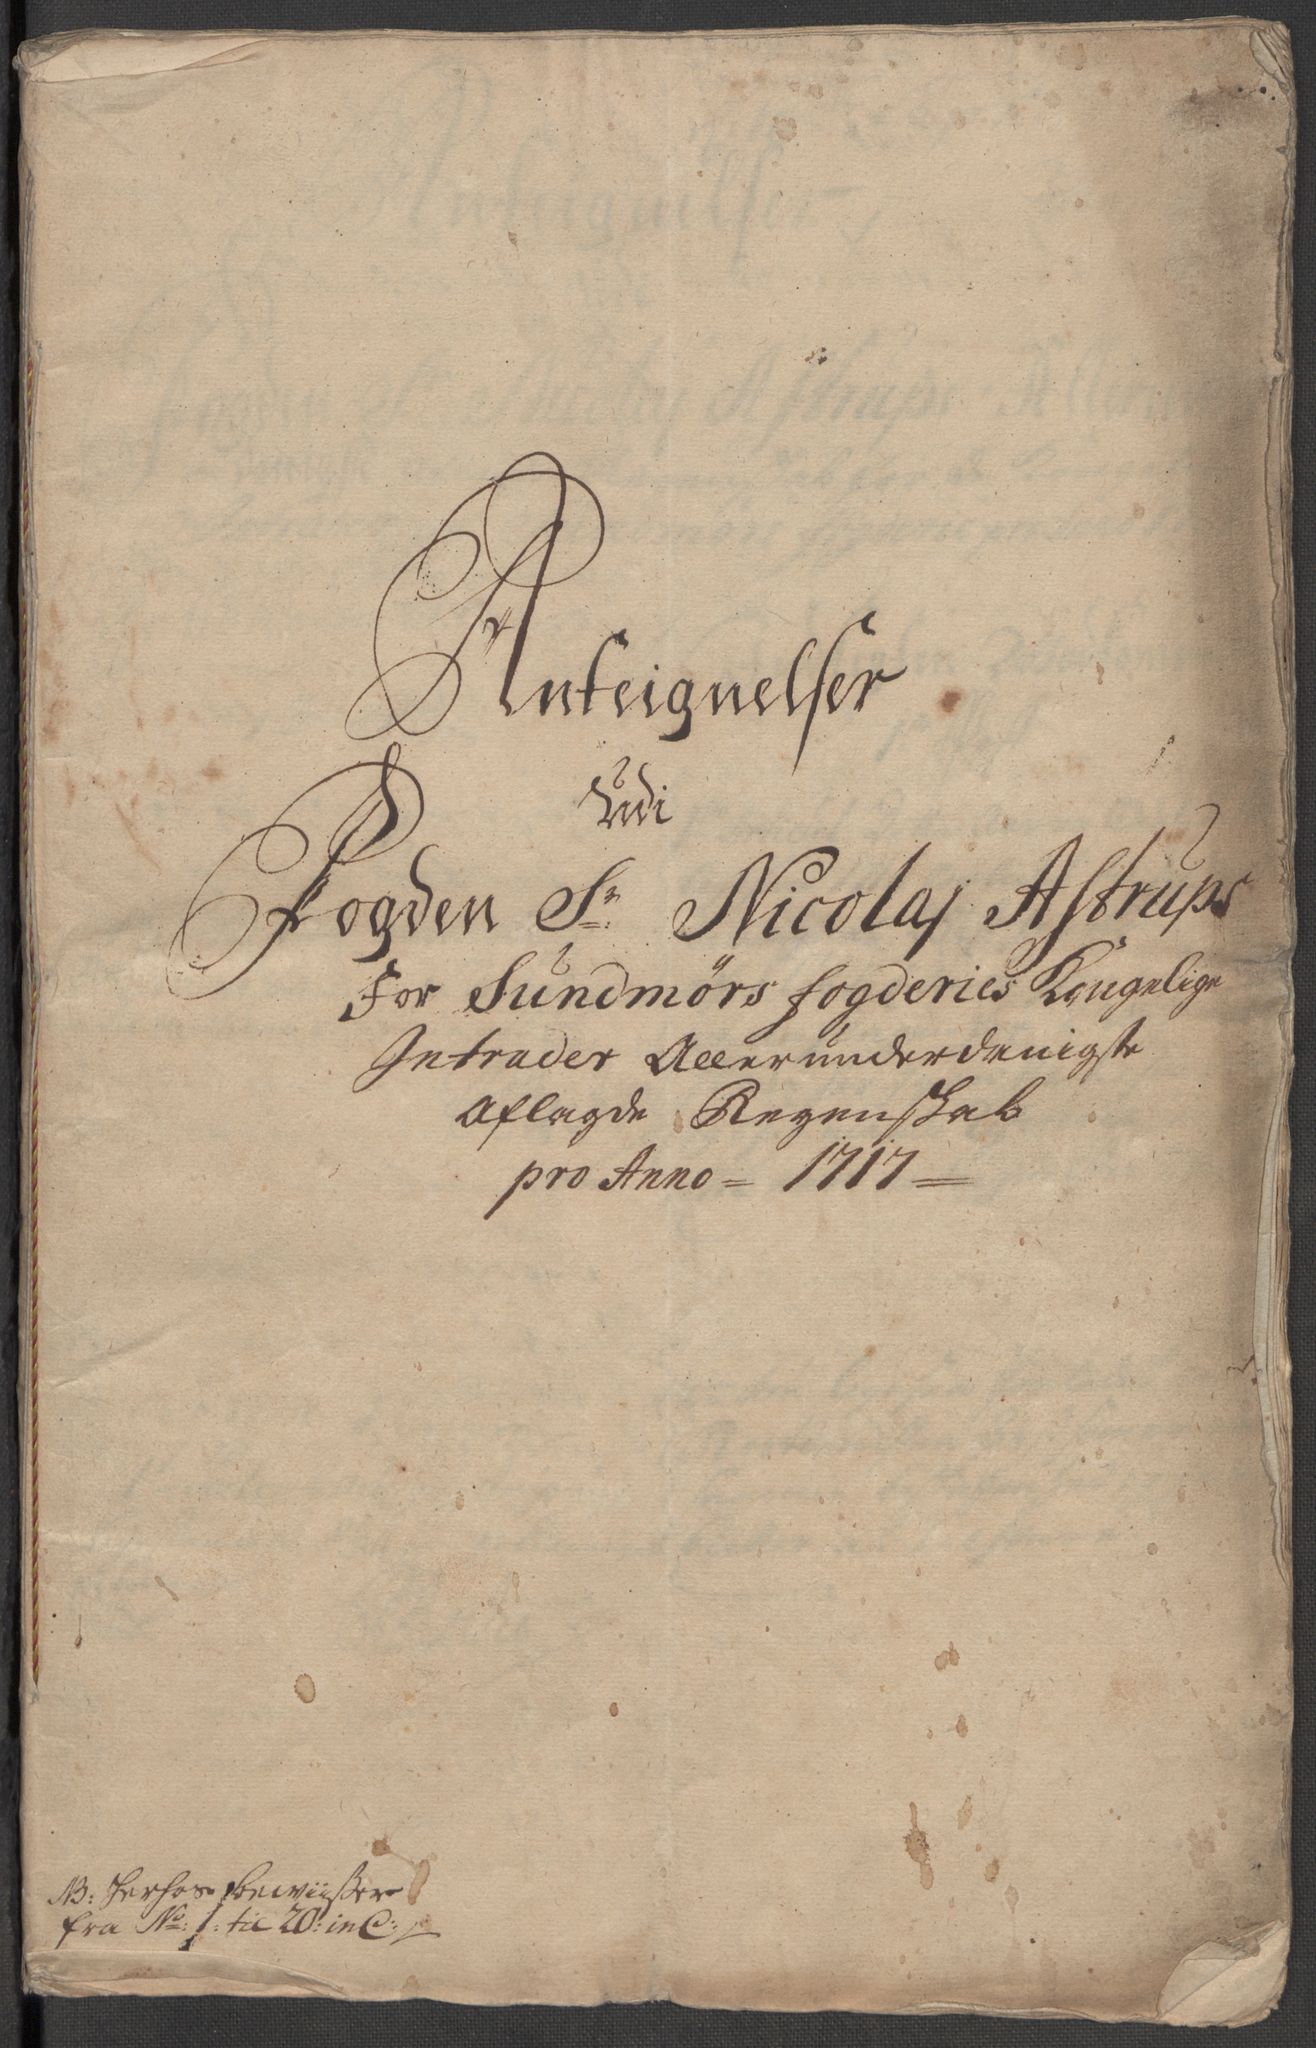 Anteignelser
Udi
Fogden Sr. Nicolaj Astrups
For Sundmörs fogderies Kongelige
Intrader Allerunderdanigste
Aflagde Regenskab
pro Anno = 1717 =
NB: herhos bewiisser
fra No: 1: til 20: incl: